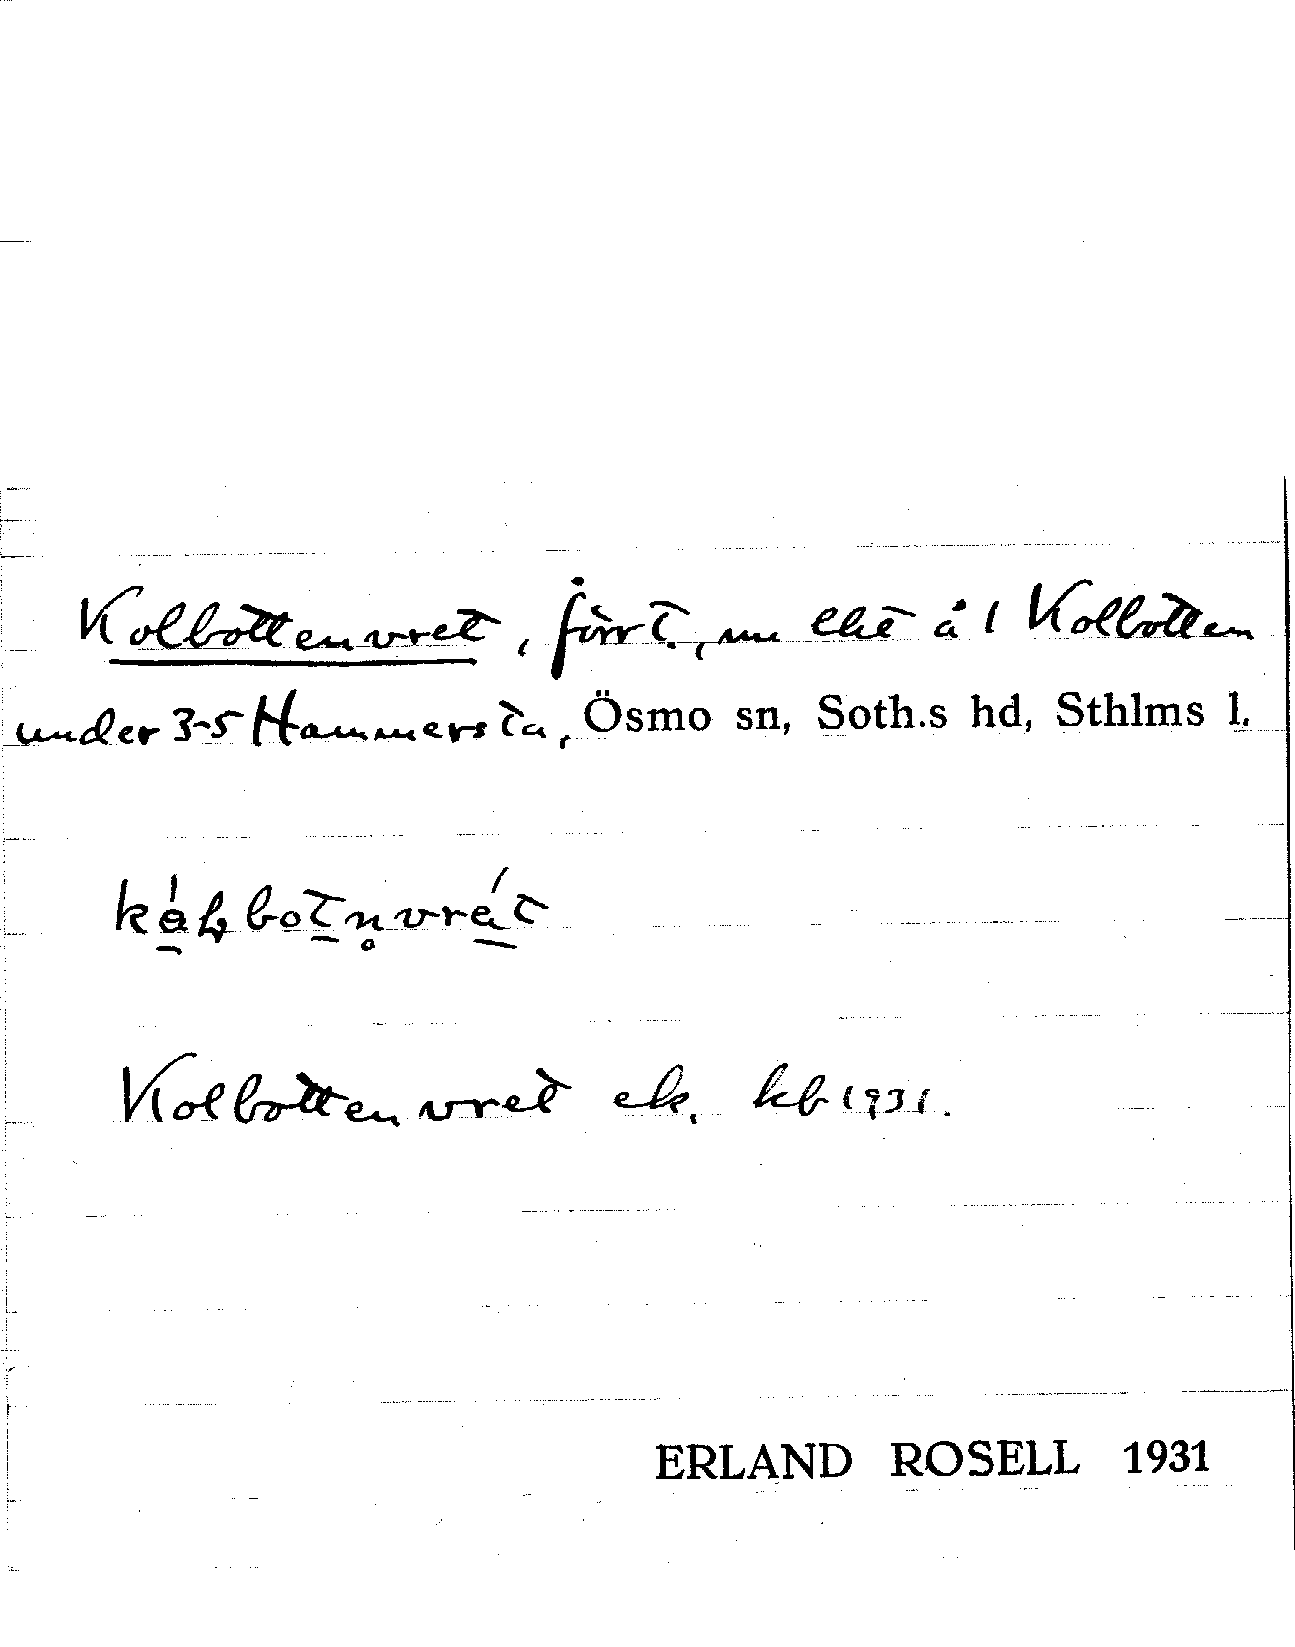 Kolbottenvret, förr t., nu lht å 1 Kolbotten
under 3-5 Hammersta, Ösmo sn, Soth.s hd, Sthlms l.
Kolbottenvret ek. kb 1931.
ERLAND ROSELL 1931